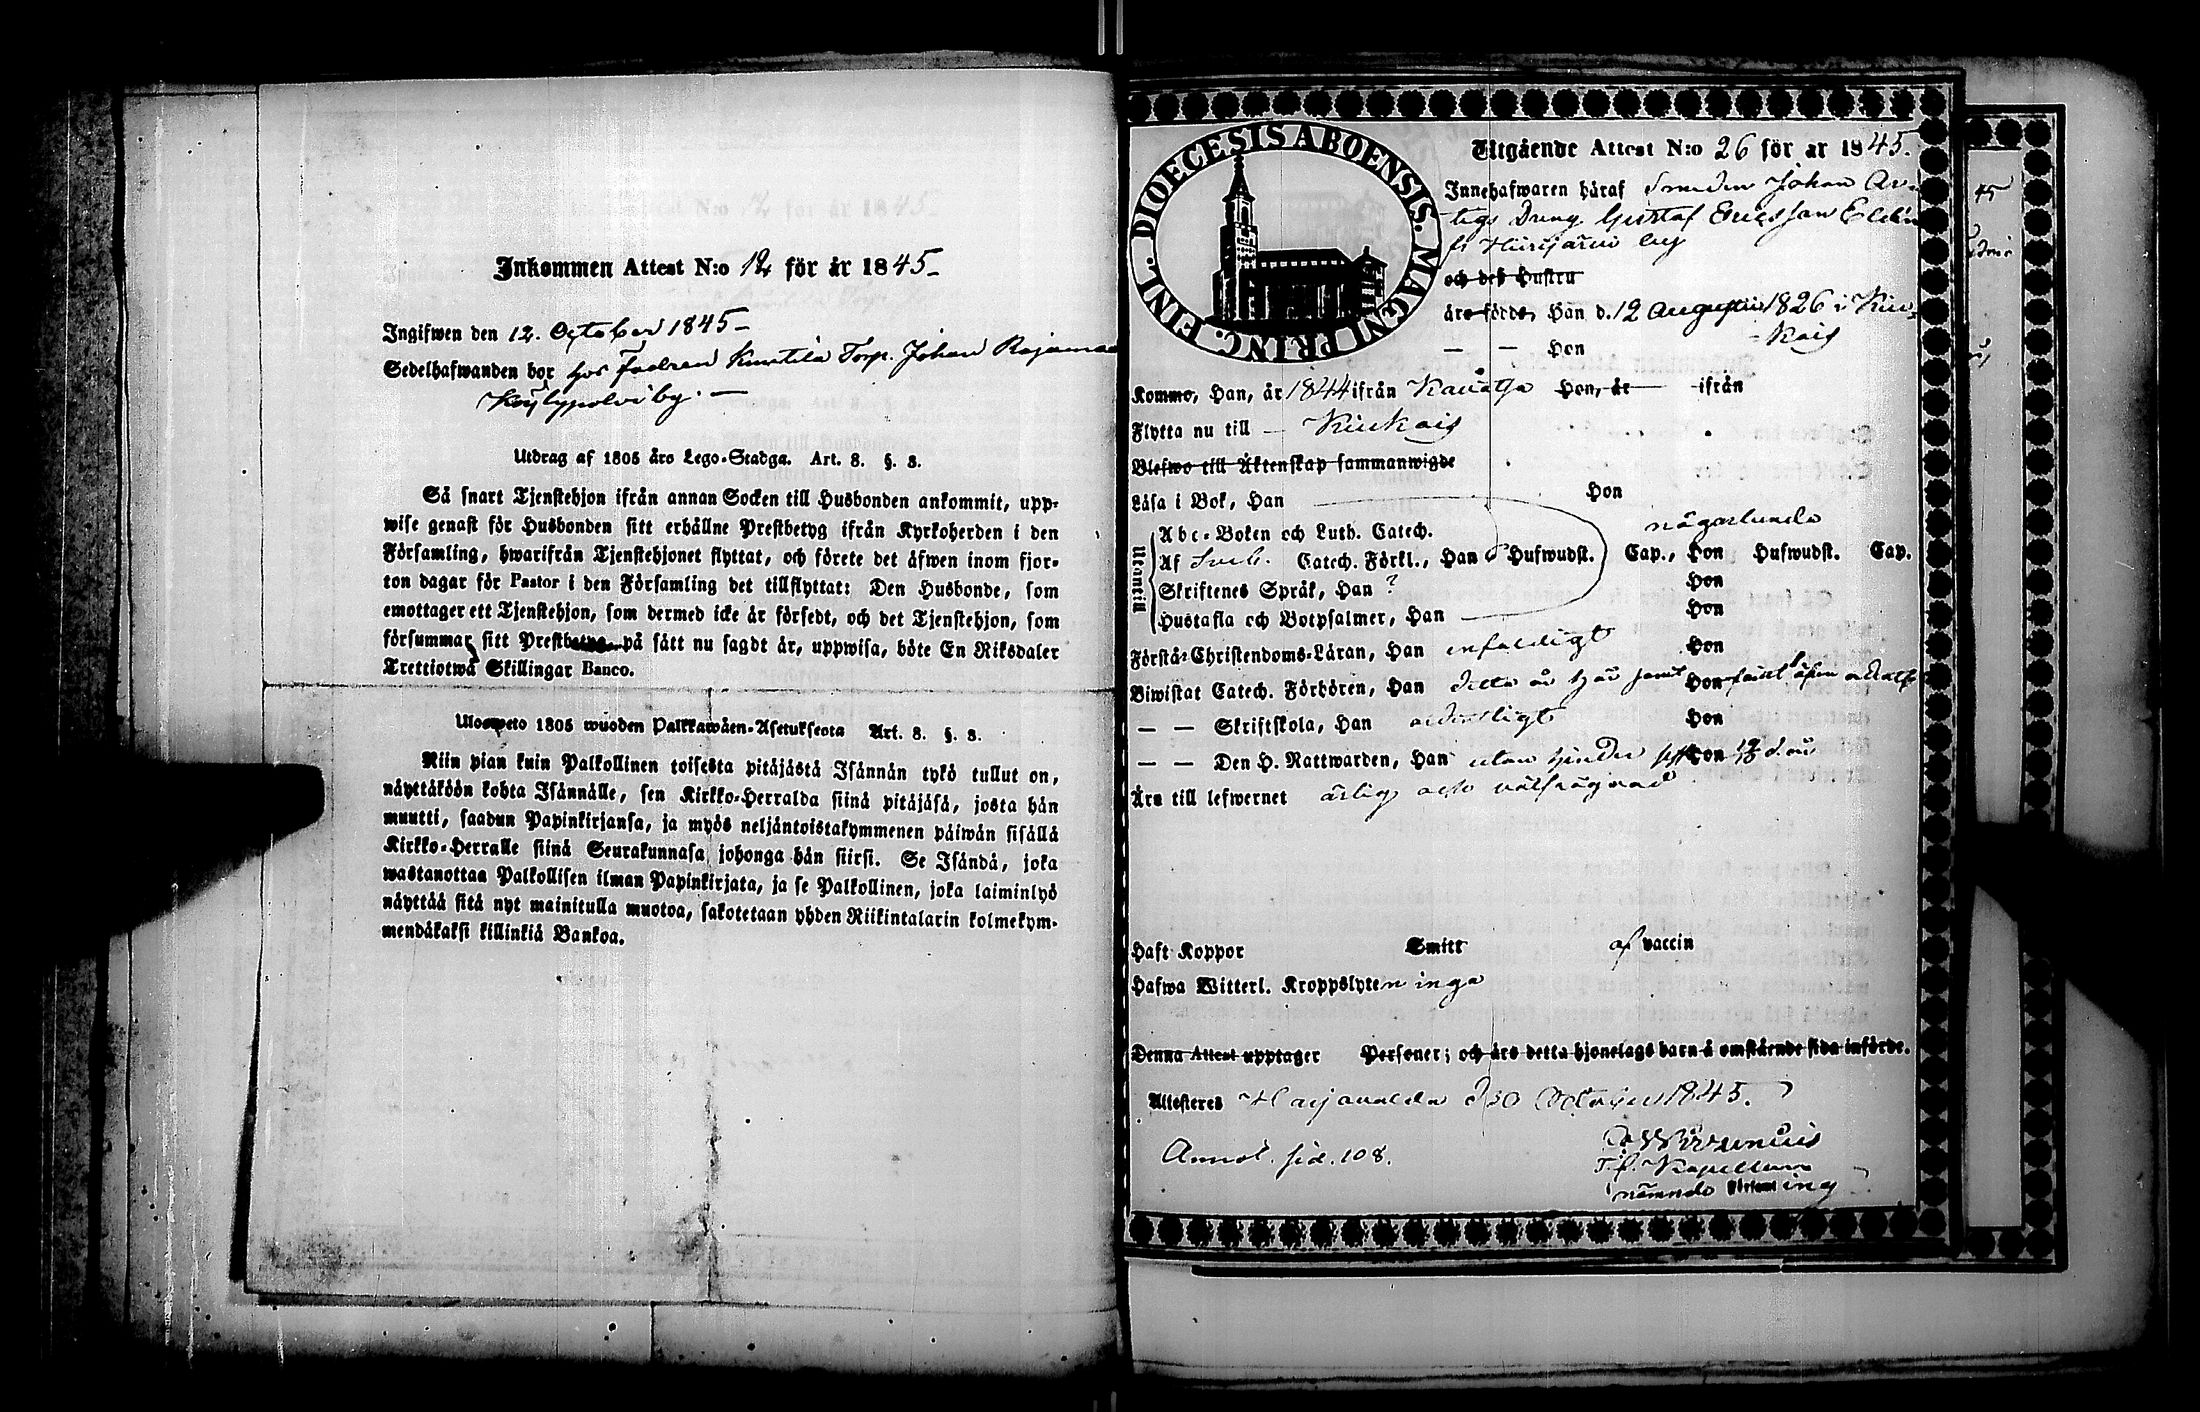 Inkommen Attest N:o 12 för år 1845-
Ingifwen den 12. October 1845-
Sedelhafwanden bor hos Torp. Johan
Köylypolvi by. —
Utdrag af 1805 års Lego-Stadga. Art. 8. §. 3.
Så snart Tjenstehjon ifrån annan Socken till Husbonden ankommit, upp-
wise genast för Husbonden sitt erhållne Prestbetyg ifrån Kyrkoherden i den
Församling, hwarifrån Tjenstehjonet flyttat, och förete det äfwen inom fjor-
ton dagar för Pastor i den Församling det tillflyttat: Den Husbonde, som
emottager ett Tjenstehjon, som dermed icke är försedt, och det Tjenstehjon, som
försummar sitt Prestbetyg på sätt nu sagdt är, uppwisa, böte En Riksdaler
Trettiotwå Skillingar Banco.
Uloswето 1805 wuoden Palkkawäen-Asetuksesta Art. 8. §. 3.
Niin pian kuin Palkollinen toisesta pitäjästä Isännän tykö tullut on,
näyttäköön kohta Isännälle, sen Kirkko-Herralda siinä pitäjäsä, josta hän
muutti, saadun Papinkirjansa, ja myös neljäntoistakymmenen päiwän sisällä
Kirkko-Herralle siinä Seurakunnasa johonga hän siirsi. Se Isändä, joka
wastanottaa Palkollisen ilman Papinkirjata, ja se Palkollinen, joka laiminlyö
näyttää sitä nyt mainitulla muotoa, sakotetaan yhden Riikintalarin kolmekym-
mendäkaksi killinkiä Bankoa.
DIOECESIS ABOENSIS. MAGNI PRINC. FINL.
Utgående Attest N:o 26 för år 1845.
Innehafwaren häraf Smeden Johan
Dreng Gustaf Ericsson
fr Hiirijärvi by
och deß Hustru
äro födde, Han d. 12 Augustii 1826 i Kiu-
— — Hon -kais
Kommo, Han, år 1844 ifrån Kauvatsa Hon, år — ifrån
Flytta nu till — Kiukais
Blefwo till Äktenskap sammanwigde
Läsa i Bok, Han Hon
Utantill
Abc-Boken och Luth. Catech. någorlunda
Af Sveb. Catech. Förkl., Han Hufwudst. Cap., Hon Hufwudst. Cap.
Skriftenes Språk, Han ? Hon
Hustafla och Botpsalmer, Han — Hon
Förstå Christendoms-Läran, Han enfaldigt Hon
Biwistat Catech. Förhören, Han detta år här samt Hon
— — Skriftskola, Han ordentligt Hon
— — Den H. Nattwarden, Han utan hinder Hon
Äro till lefwernet ärlig och välfrägdad
Haft Koppor Smitt af vaccin
Hafwa Witterl. Kroppslyten inga
Denna Attest upptager Personer; och äro detta hjonelags barn å omstående sida införde.
Attesteres Harjavalda d 30 October 1845.
Annot. sid. 108.
T.f. Kapellan i
nämnde Församling